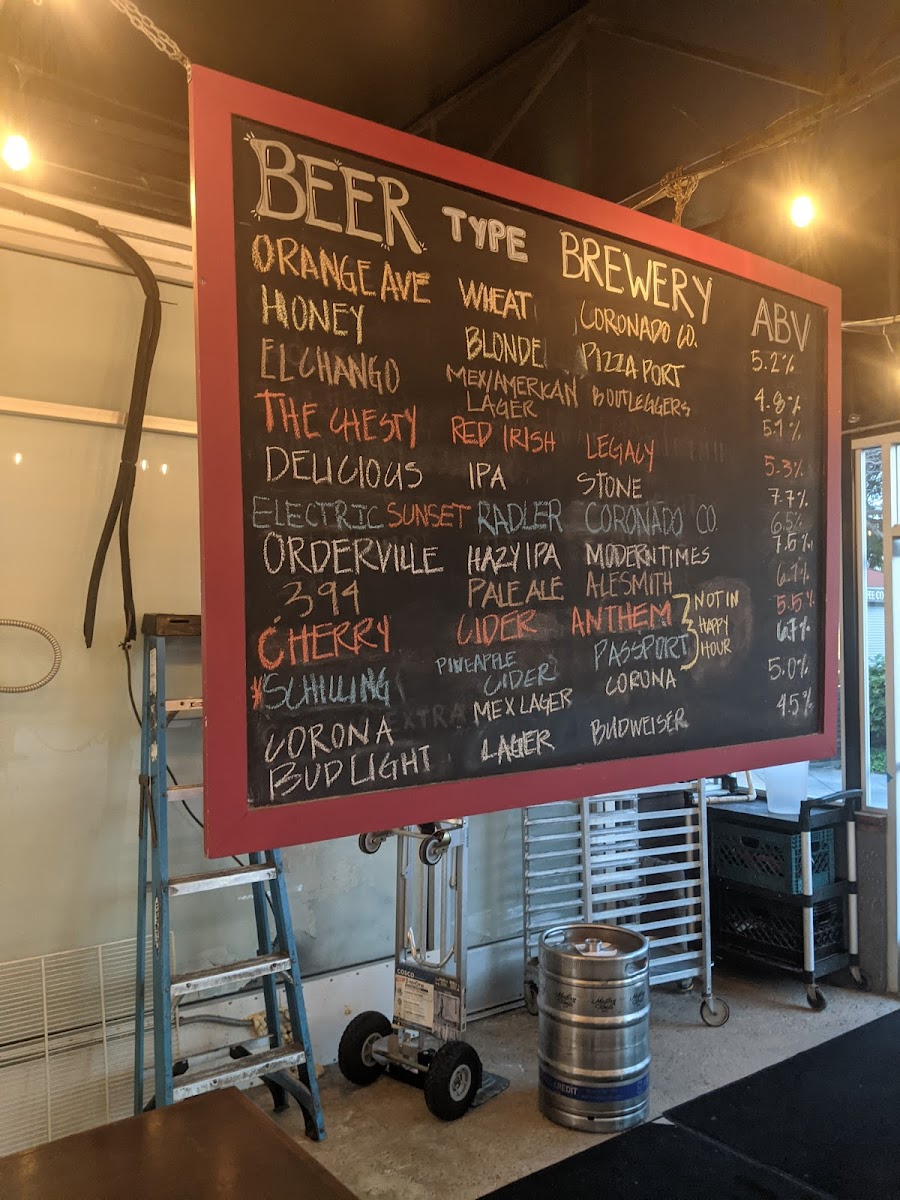 BEER TYPE BREWERY ABV
ORANGE AVE WHEAT CORONADO CO. 5.2%
HONEY BLONDE PIZZA PORT 4.8%
EL CHANGO MEX/AMERICAN LAGER BOOTLEGGERS 5.1%
THE CHESTY RED IRISH LEGACY 5.3%
DELICIOUS IPA STONE 7.7%
ELECTRIC SUNSET RADLER CORONADO CO. 6.5%
ORDERVILLE HAZY IPA MODERN TIMES 7.5%
.394 PALE ALE ALESMITH 6.1%
CHERRY CIDER ANTHEM 5.5%
*SCHILLING PINEAPPLE CIDER PASSPORT 6.7%
NOT IN HAPPY HOUR
CORONA EXTRA MEX LAGER CORONA 5.0%
BUD LIGHT LAGER BUDWEISER 4.5%
COSCO
CREDIT